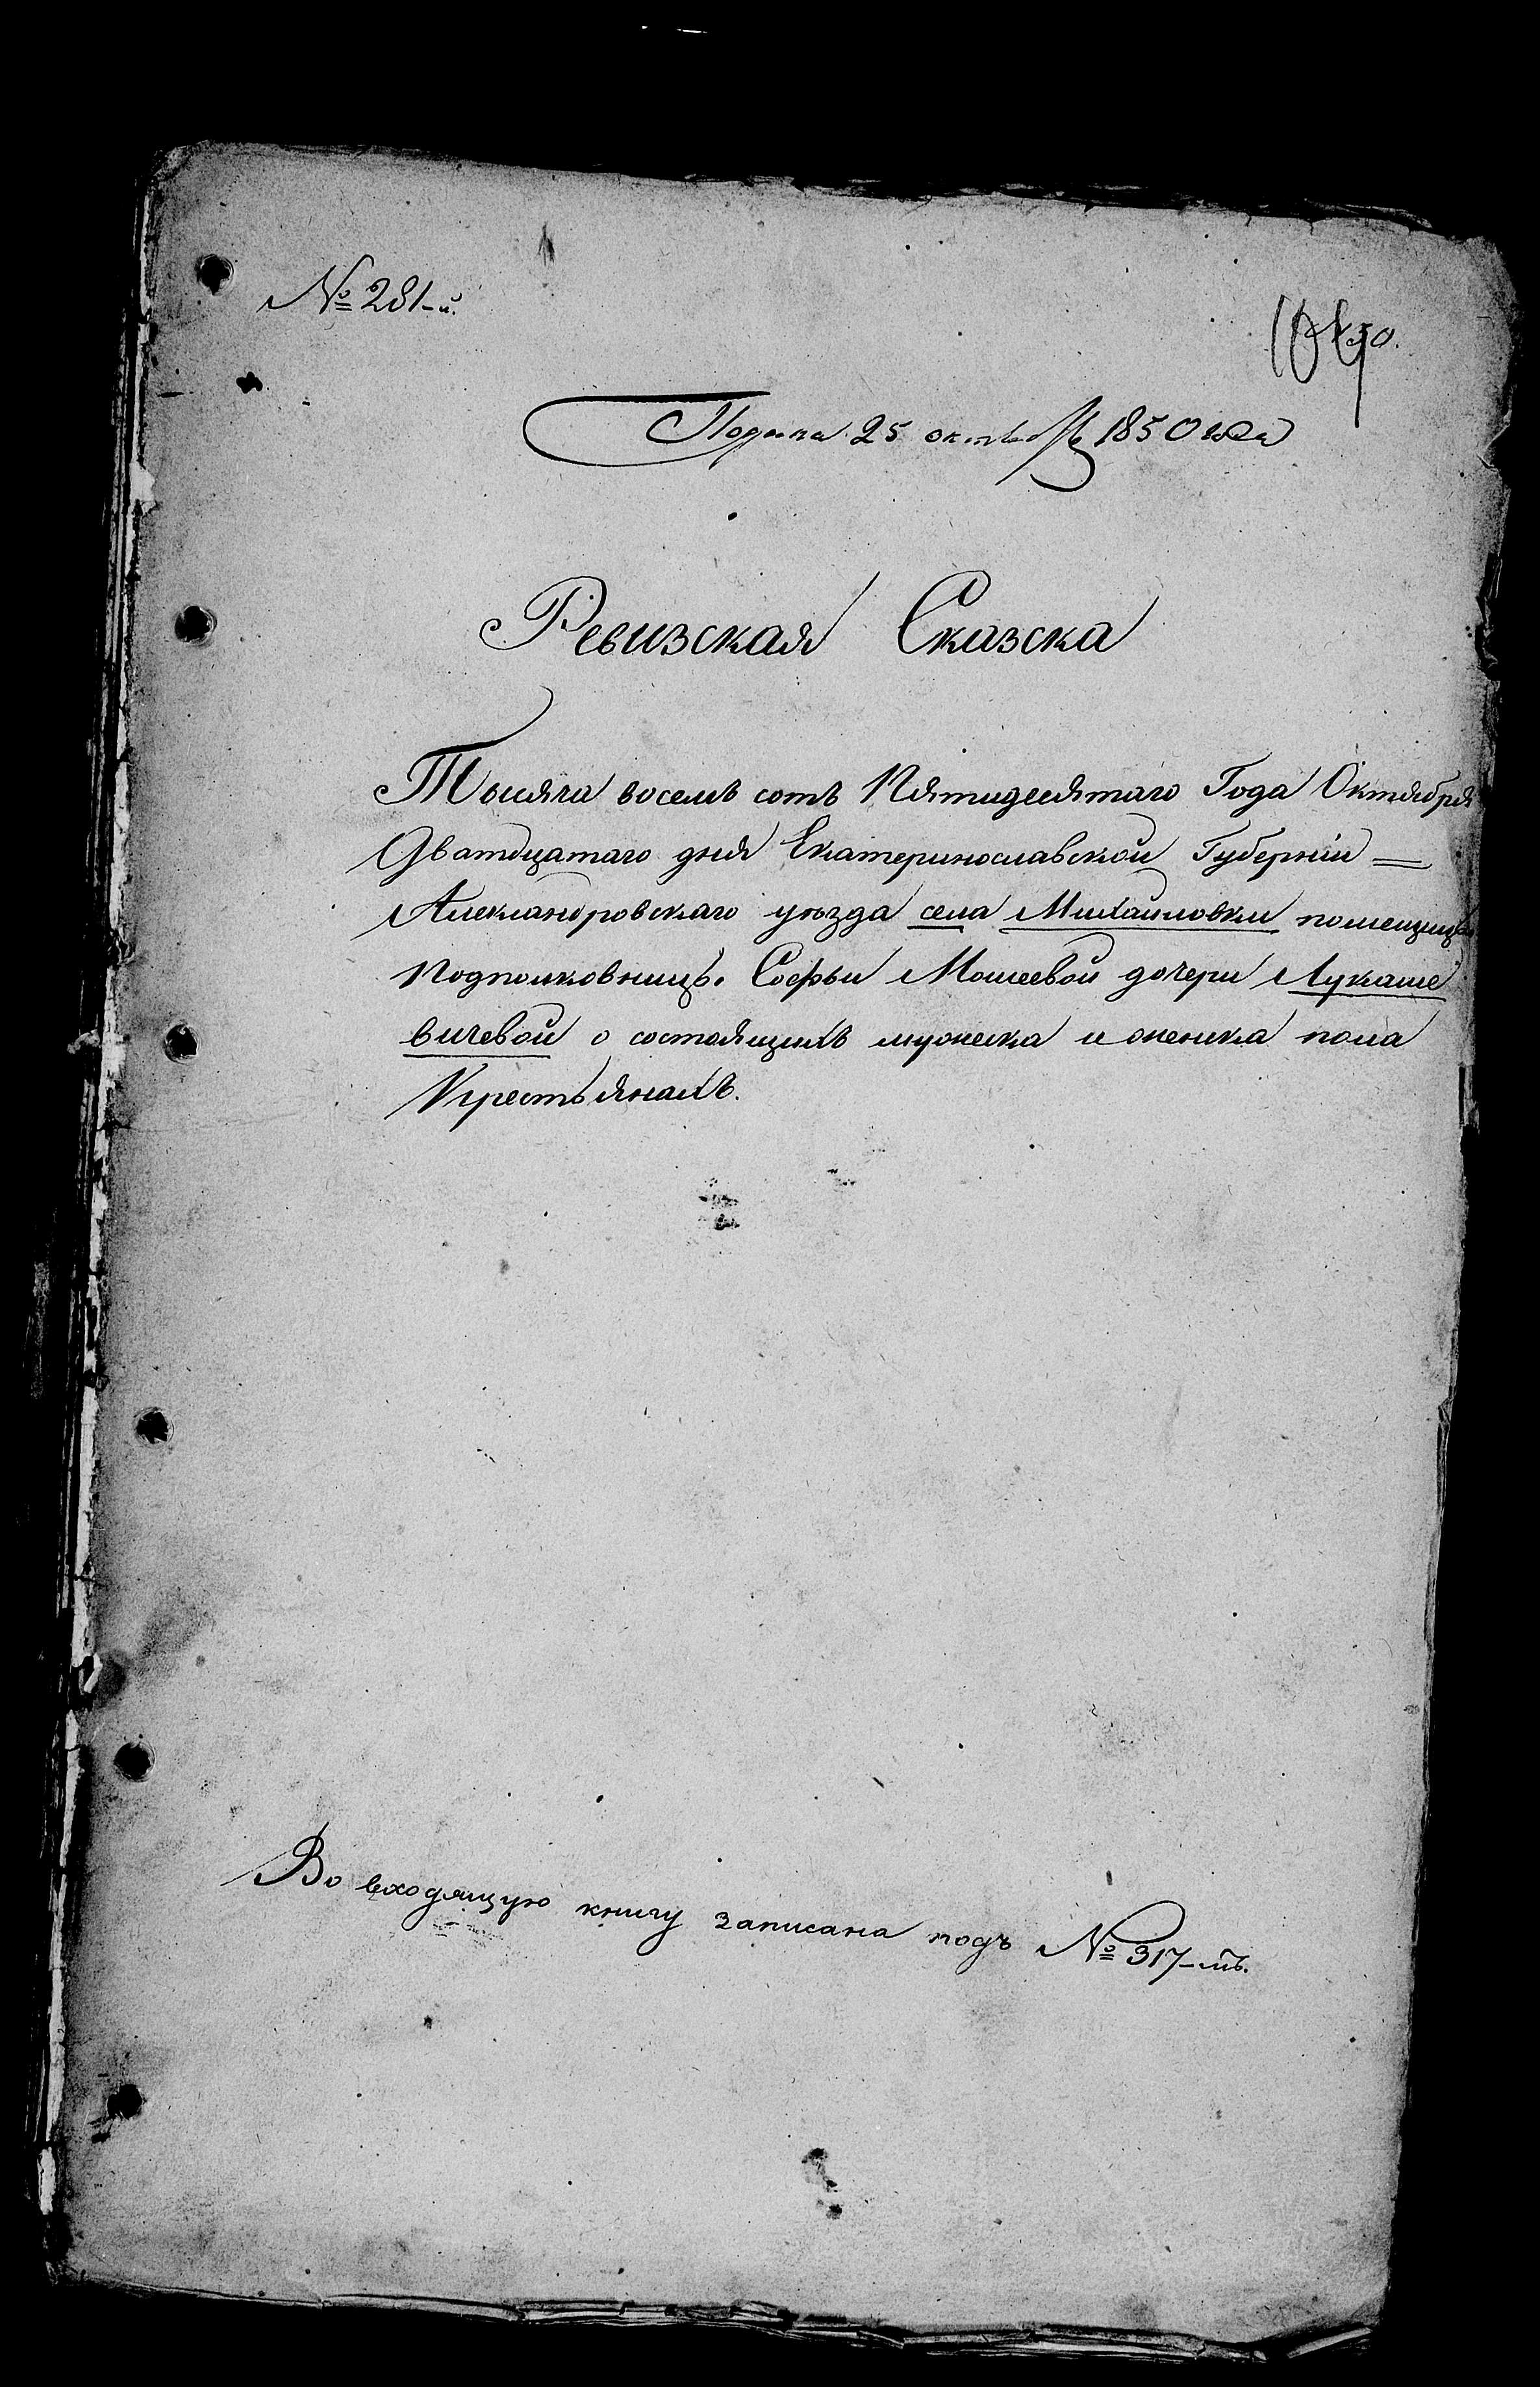 № 281-й.
Подана 25 октября 1850 года
Ревизская Сказска
Тысяча восемь сотъ Пятидесятаго Года Октября
Дватцатаго дня Екатеринославской Губерніи =
Александровскаго уезда села Михайловки помещицы
Подполковницы Софьи Моисеевой дочери Лукаше
вичевой о состоящихъ мужеска и женска пола
Крестьянахъ.
Во входящую книгу записана подъ № 317-мъ.